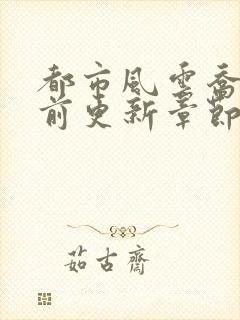 都市風雲喬
前更新章節
茹古齋